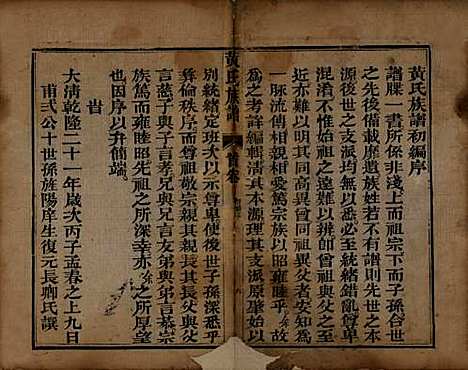 黃氏族譜初編序
譜牒一書所係非淺上而祖宗下而子孫合世
世之先後序次備載靡遺族姓若不有譜則先世之本
源後世之支派均不悉必至統緒錯亂尊卑
混淆不惟始祖之遠難以辨即曾與父之
近亦難以明其同高異曾同祖異父者安知為
一脈流傳相親相愛篤宗族以昭雍睦乎 故
為之考詳編輯清其本源理其支派原使其始以
別統緒定班次以示尊卑使後世子孫深悉乎
彝倫秩敘而尊祖敬宗親其親長其長父與父
言慈子與子言孝兄與兄言友弟與弟言恭宗
族篤而雍睦昭先祖之所深幸亦 之所厚望
也因序以弁簡端
旹
大清乾隆二十一年歲次丙子孟春之上九日
甫弍公十世孫旌陽庠生復元長卿氏譔
黃氏族譜
首卷